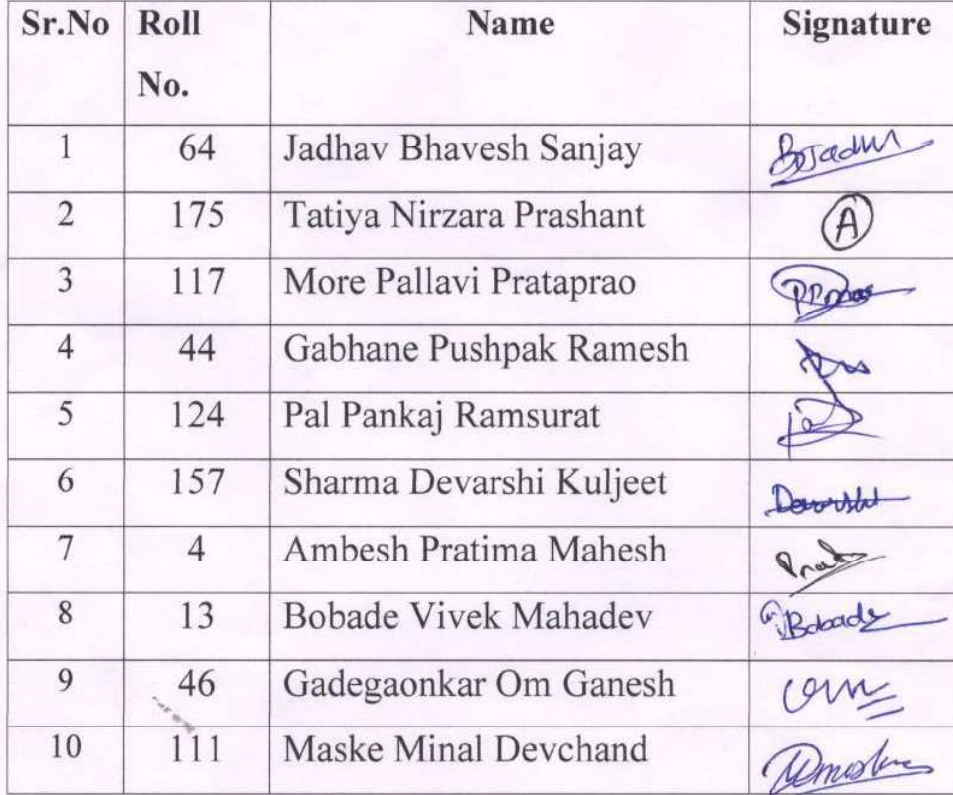 Sr.No Roll No. Name Signature
1 64 Jadhav Bhavesh Sanjay BSJadhav
2 175 Tatiya Nirzara Prashant A
3 117 More Pallavi Prataprao PPmore
4 44 Gabhane Pushpak Ramesh
5 124 Pal Pankaj Ramsurat
6 157 Sharma Devarshi Kuljeet Devarshi
7 4 Ambesh Pratima Mahesh
8 13 Bobade Vivek Mahadev Bobade
9 46 Gadegaonkar Om Ganesh Om
10 111 Maske Minal Devchand